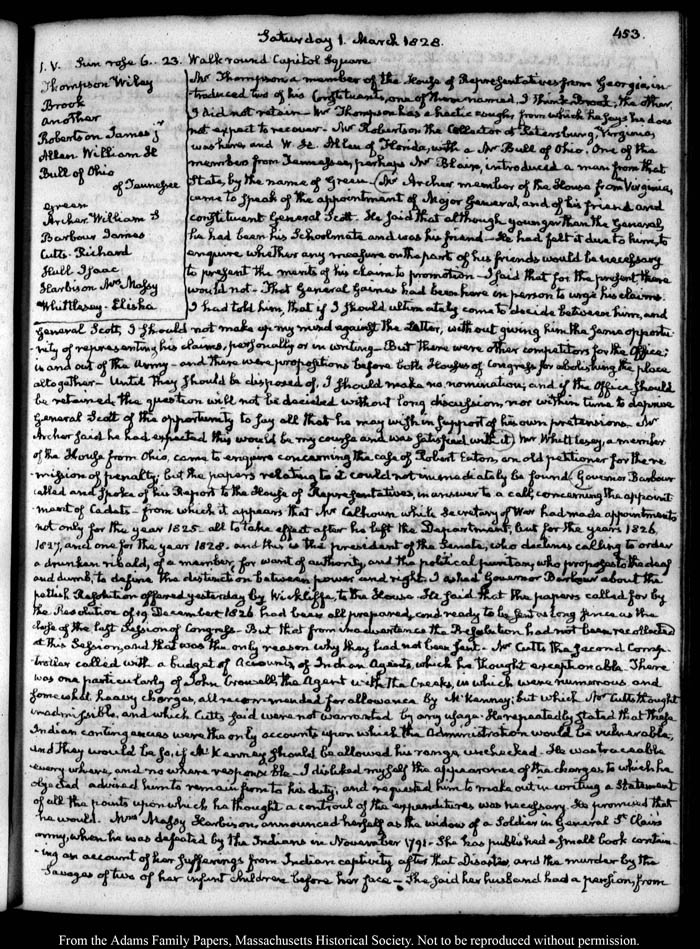 Saturday 1. March 1828.
453.
1. V. Sun rose 6..23. Walk round Capitol Square
Thompson Wiley
Brook
another
Robertson James Jr
Allen William H
Bull of Ohio
of Tennessee
Green
Archer William S
Barbour James
Cutts. Richard
Hull Isaac
Harbison Mrs Massy
Whittlesey. Elisha
Mr Thompson a member of the House of Representatives from Georgia, in-
troduced two of his Constituents, one of them named, I think Brook, the other
I did not retain. Mr Thompson has a hectic cough, from which he says he does
not expect to recover. Mr Robertson the Collector at Petersburg Virginia,
was here, and W. H. Allen of Florida, with a Mr Bull of Ohio. One of the
members from Tennessee, perhaps Mr Blair, introduced a man from that
State, by the name of Green. (Mr Archer member of the House from Virginia,
came to speak of the appointment of Major General, and of his friend and
constituent General Scott. He said that although younger than the General,
he had been his Schoolmate and was his friend. He had felt it due to him, to
enquire whether any measure on the part of his friends would be necessary
to present the merits of his claim to promotion. I said that for the present there
would not. That General Gaines had been here in person to urge his claims.
I had told him, that if I should ultimately come to decide between him, and
General Scott, I should not make up my mind against the latter, without giving him the same opportu-
nity of representing his claims, personally or in writing. But there were other competitors for the Office;
in and out of the Army. and there were propositions before both Houses of Congress for abolishing the place
altogether. Until they should be disposed of, I should make no nomination; and if the Office should
be retained, the question will not be decided without long discussion, nor within time to deprive
General Scott of the opportunity to say all that he may wish in support of his own pretensions. Mr
Archer said he had expected this would be my course and was satisfied with it) Mr Whittlesey, a member
of the House from Ohio, came to enquire concerning the case of Robert Eaton, an old petitioner for the re-
mission of penalty, but the papers relating to it could not immediately be found (Governor Barbour
called and spoke of his Report to the House of Representatives, in answer to a call, concerning the appoint
ment of Cadets. from which it appears that Mr Calhoun while Secretary of War had made appointments
not only for the year 1825. all to take effect after he left the Department, but for the years 1826.
1827, and one for the year 1828. and this is the president of the Senate, who declines calling to order
a drunken ribald, of a member, for want of authority, and the political puritan, who proposes to the deaf
and dumb, to define the distinction between power and right. I asked Governor Barbour about the
pettish Resolution offered yesterday by Wickliffe, to the House. He said that the papers called for by
the Resolution of 19 December 1826 had been all prepared, and ready to be sent so long since as the
close of the last Session of Congress. But that from inadvertence the Resolution had not been recollected
at this Session, and that was the only reason why they had not been sent. Mr Cutts the second Comp-
troller called with a budget of Accounts of Indian Agents, which he thought exceptionable. There
was one particularly of John Crowell the Agent with the Creeks, in which were numerous and
somewhat heavy charges, all recommended for allowance by McKenney; but which Mr Cutts thought
inadmissible, and which Cutts said were not warranted by any usage. He repeatedly stated that these
Indian contingencies were the only accounts upon which the Administration would be vulnerable,
and they would be so, if McKenney should be allowed his range, unchecked. He was traceable
every where, and no where responsible. I disliked myself the appearance of the charges to which he
objected advised him to remain firm to his duty, and requested him to make out in writing a Statement
of all the points upon which he thought a controul of the expenditures was necessary. He promised that
he would. Mrs Massy Harbison, announced herself as the widow of a Soldier in General St Clair's
army, when he was defeated by the Indians in November 1791. She has published a small book contain-
-ing an account of her sufferings from Indian captivity after that Disaster, and the murder by the
Savages of two of her infant children before her face. She said her husband had a pension, from
From the Adams Family Papers, Massachusetts Historical Society. Not to be reproduced without permission.